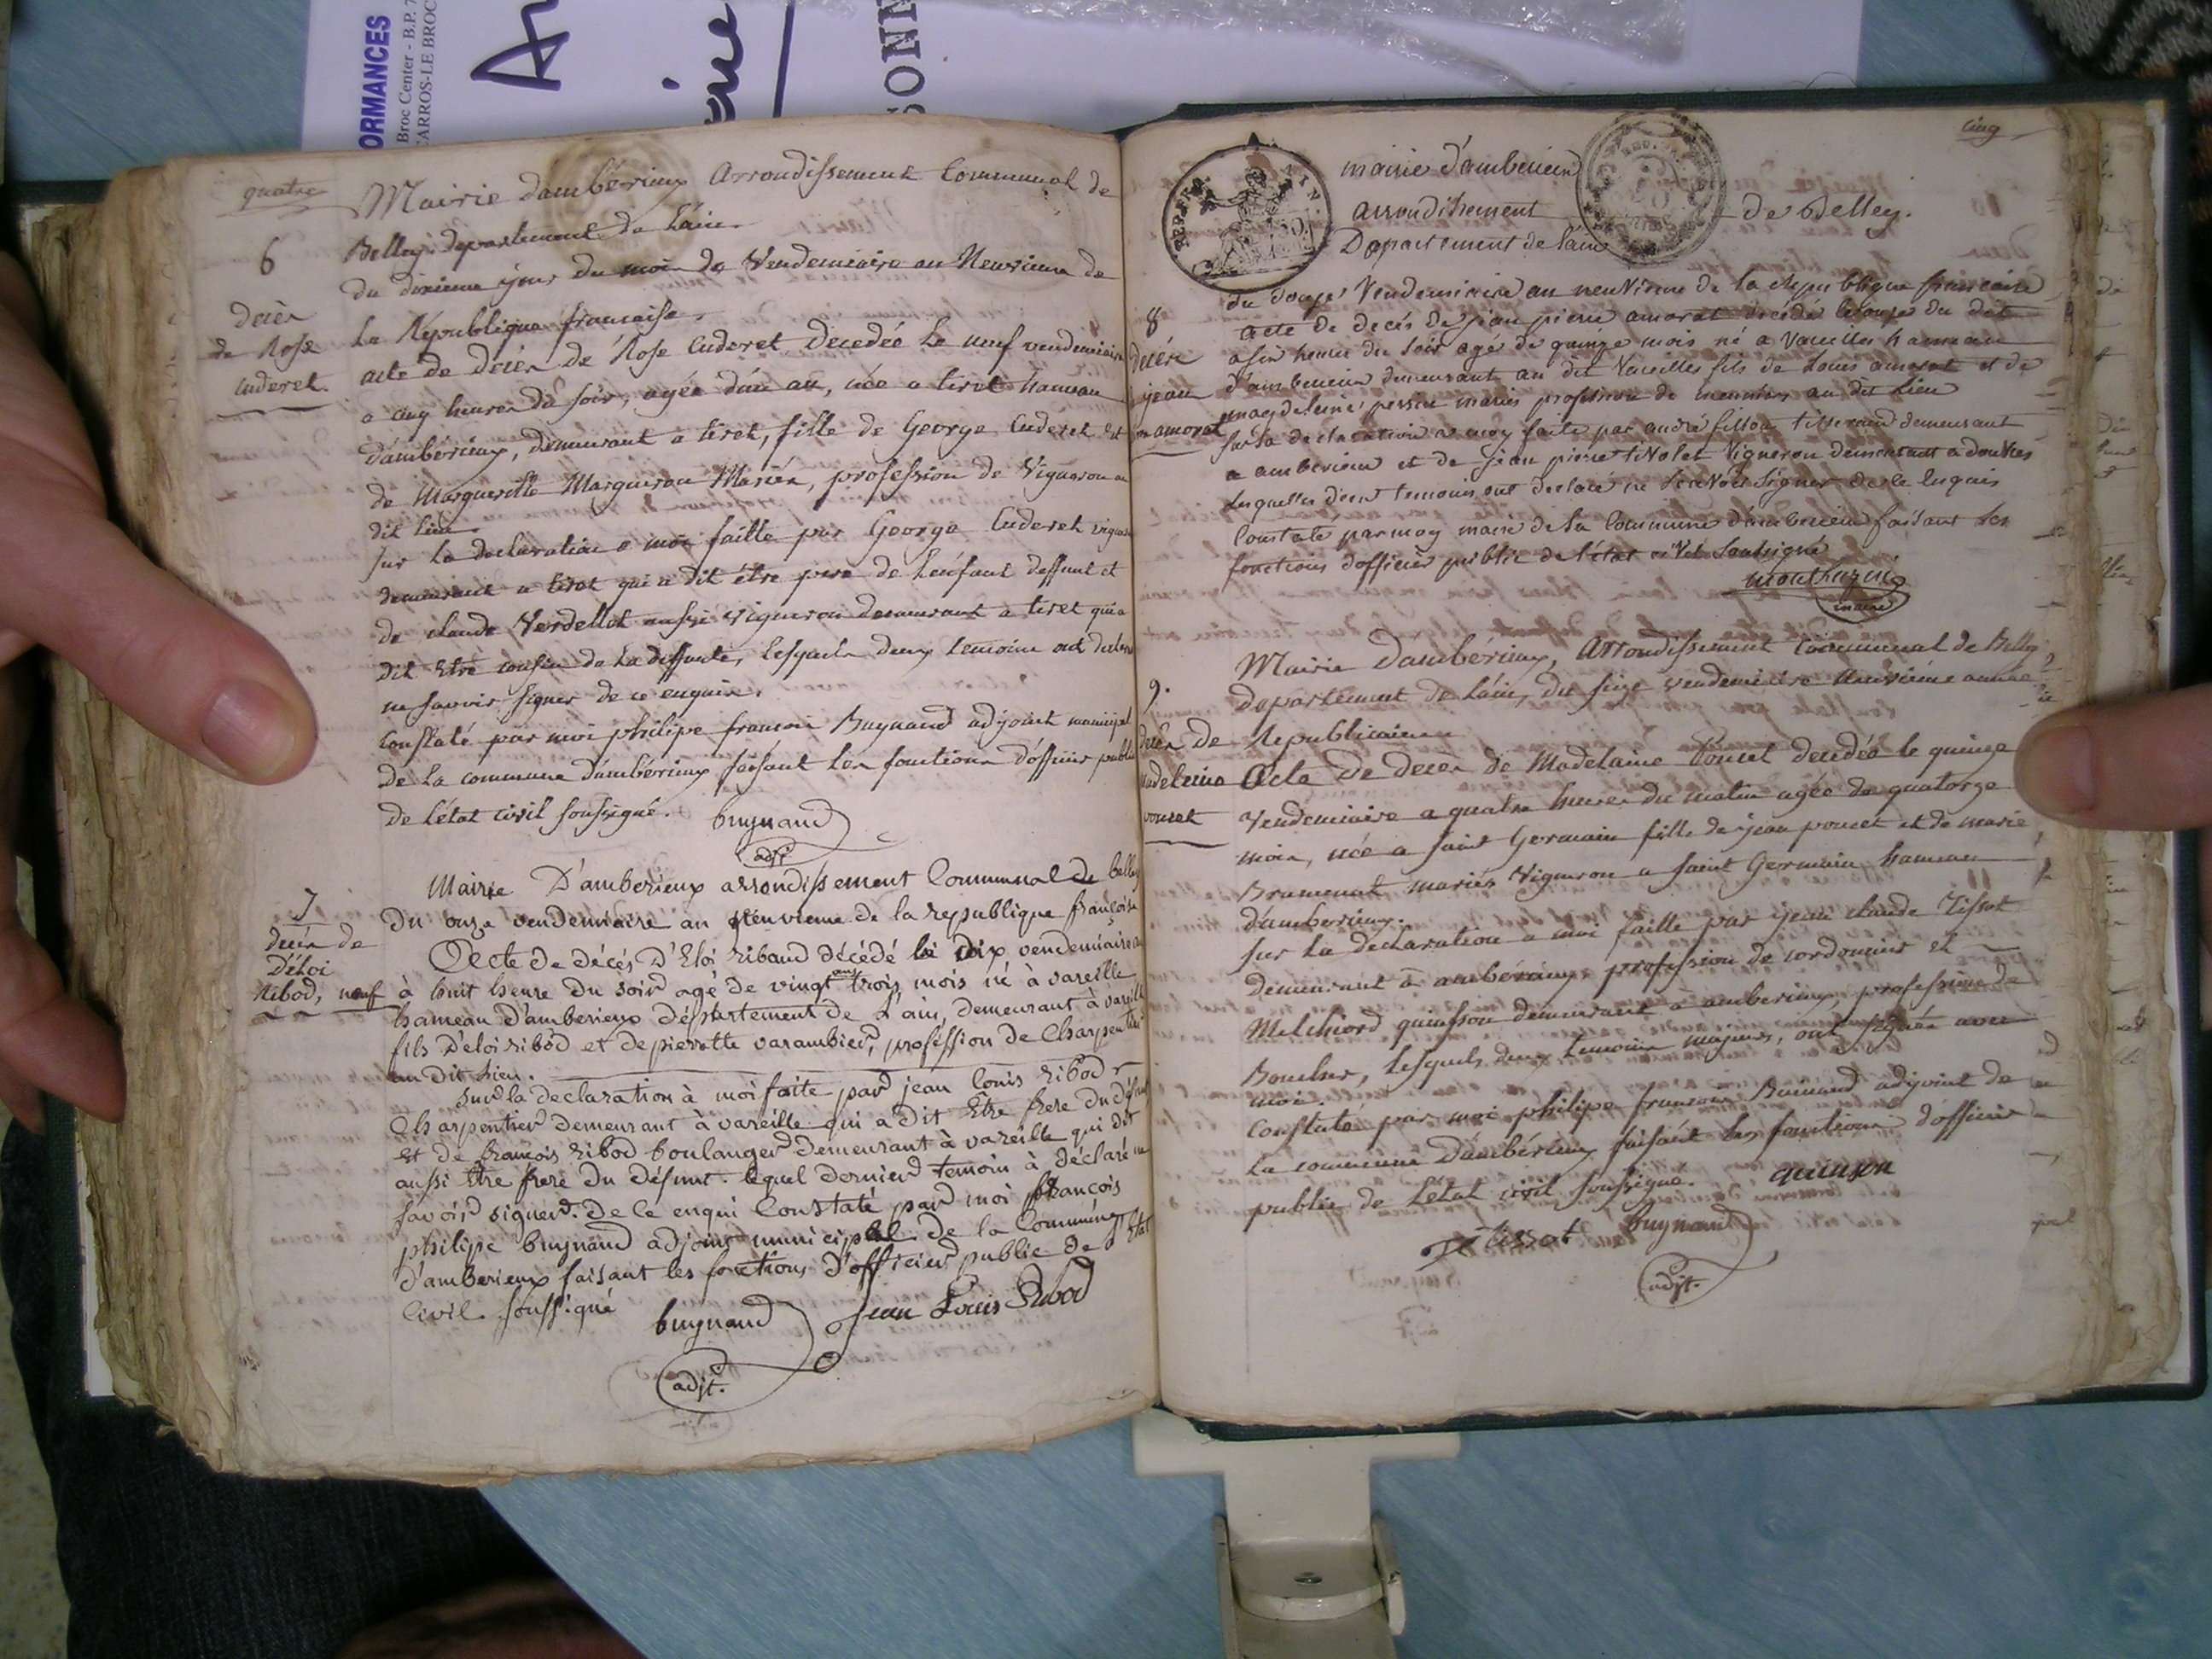 ORMANCES
Broc Center - B.P. 7
CARROS-LE BROC
quatre
Mairie dambérieux Arrondissement Communal de
Belley département de Lain.
6
du dixieme jour du mois de Vendemiaire an Neuvieme de
la République francaise.
décès
de Rose
Cuderet.
acte de décès de Rose Cuderet Décédée le neuf vendemiaire
a cinq heures du soir, agée d'un an, née a tiret hameau
d'ambérieux, demeurant a tiret, fille de George Cuderet et
de Margueritte Margueron Mariés, profession de Vigneron au
dit lieu
sur la declaration a moi faitte par George Cuderet vigneron
demeurant a tiret qui a dit être pere de l'enfant deffunt et
de claude Verdellet aussi vigneron demeurant a tiret qui a
dit Etre cousin de La deffunte, lesquels deux temoins ont declaré
ne savoir signer de ce enquis.
Constaté par moi philipe francois Buynand adjoint municipal
de la commune d'ambérieux faisant les fonctions d'officier public
de l'état civil soussigné.
buynand
adjt
Mairie D'amberieux arrondissement Communal de belley
7
Du onze vendemiaire an Neuvieme de la republique françoise
decès de
D'éloi
Ribod, neuf
Acte de décés D'Eloi ribaud décédé le dix vendemiaire
à huit heure Du soir agé de vingt ans trois mois né à vareille
hameau D'amberieux département de L'ain, demeurant à vareille
fils D'eloi ribod et de pierrette varambier, profession de Charpentier
au dit Lieu.
Sur la declaration à moi faite par jean Louis ribod
Charpentier demeurant à vareille qui a dit Etre frere Du défunt
Et de françois ribod boulanger demeurant à vareille qui dit
aussi Etre frere Du défunt. lequel dernier temoin à déclaré ne
savoir signer. De Ce enqui Constaté par moi françois
philipe buynand adjoint municipal de la Commune
D'amberieux faisant les fonctions D'officier public de L'Etat
Civil soussigné
buynand
Jean Louis Ribod
adjt.
cinq
mairie d'amberieux
arrondissement de Belley.
Departement de l'ain
8
du douze Vendemiaire an neuvieme de la republique francaise
acte de decés de jean pierre amorat decédé le onze du dit
decés
jean
amorat
a six heures du soir agé de quinze mois né a Vareilles hameau
d'amberieux demeurant au dit Vareilles fils de Louis amorat et de
magdeleine perrin mariés profession de meunier au dit lieu
sur la declaration a moy faite par andré fillon tisserand demeurant
a amberieux et de jean pierre tivolet Vigneron demeurant a douvres
lesquelles deux temoins ont declaré ne scavoir signer de ce enquis
Constaté par moy maire de la Commune d'amberieux faisant les
fonctions d'officier public de l'état civil soussigné
maire
Mairie d'ambérieux, Arrondissement Communal de Belley
9.
departement de Lain, du seize vendemiaire neuvieme année
Republicaine
decès de
madeleine
poncet
Acte de decès de Madelaine Poncet decédée le quinze
Vendemiaire a quatre heures du matin agée de quatorze
mois, née a saint Germain fille de jean poncet et de marie
Bramenat mariés Vigneron a saint Germain hameau
d'amberieux.
sur la declaration a moi faitte par jean claude Tissot
demeurant a ambérieux, profession de cordonnier et
Melchiord quinson demeurant a amberieux, profession de
Boucher, lesquels deux temoins majeurs, ont signés avec
moi.
Constaté par moi philipe francois Buinand adjoint de
La commune d'ambérieux faisant les fonctions d'officier
public de l'état civil soussigné.
quinson
tissot
buynand
adjt.